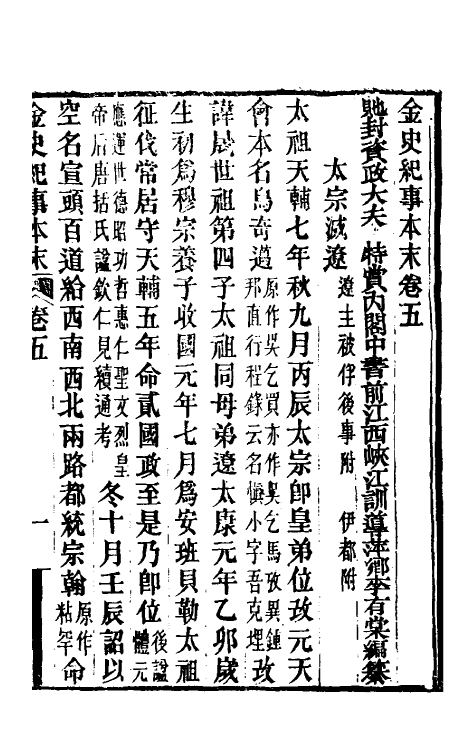 金史紀事本末卷五
馳封資政大夫 特賞內閣中書前江西峽江訓導萍鄉李有棠編纂
太宗滅遼 遼主被俘後事附 伊都附
太祖天輔七年秋九月丙辰太宗卽皇弟位改元天
會本名烏奇邁 原作吳乞買亦作吳乞馬攷異鍾邦直行程錄云名慎小字吾克埋 改
諱晟世祖第四子太祖同母弟遼太康元年乙卯歲
生初爲穆宗養子收國元年七月爲安班貝勒太祖
征伐常居守天輔五年命貳國政至是乃卽位 後諡體元
應運世德昭功哲惠仁聖文烈皇帝后唐括氏諡欽仁見續通考 冬十月壬辰詔以
空名宣頭百道給西南西北兩路都統宗翰 原作粘罕 命
金史紀事本末 卷五 一